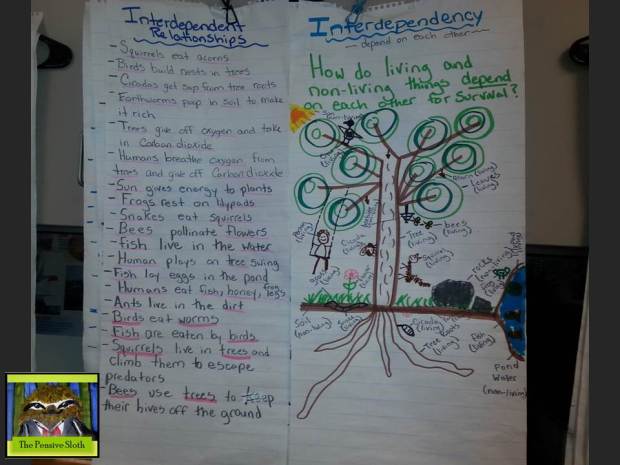 Interdependent
Relationships
- Squirrels eat acorns
- Birds build nests in trees
- Cicadas get sap from tree roots
- Earthworms poop in soil to make
it rich
- Trees give off oxygen and take
in Carbon dioxide
- Humans breathe oxygen from
trees and give off Carbon dioxide
- Sun gives energy to plants
- Frogs rest on lilypads
- Snakes eat squirrels
- Bees pollinate flowers
- fish live in the water
- Human plays on tree swing
- Fish lay eggs in the pond
- Humans eat fish, honey, frog legs
- Ants live in the dirt
- Birds eat worms
- Fish are eaten by birds
- Squirrels live in trees and
climb them to escape
predators
- Bees use trees to keep
their hives off the ground
Interdependency
- depend on each other -
How do living and
non-living things depend
on each other for Survival?
Sun
(non-living)
Acorn (living)
leaves
(living)
bees
(living)
Tree
(living)
Squirrel
(living)
rocks
(non-living)
Soil
(non-living)
Cicada
(living)
Tree
Roots
(living)
Fish
(living)
Pond
Water
(non-living)
The Pensive Sloth